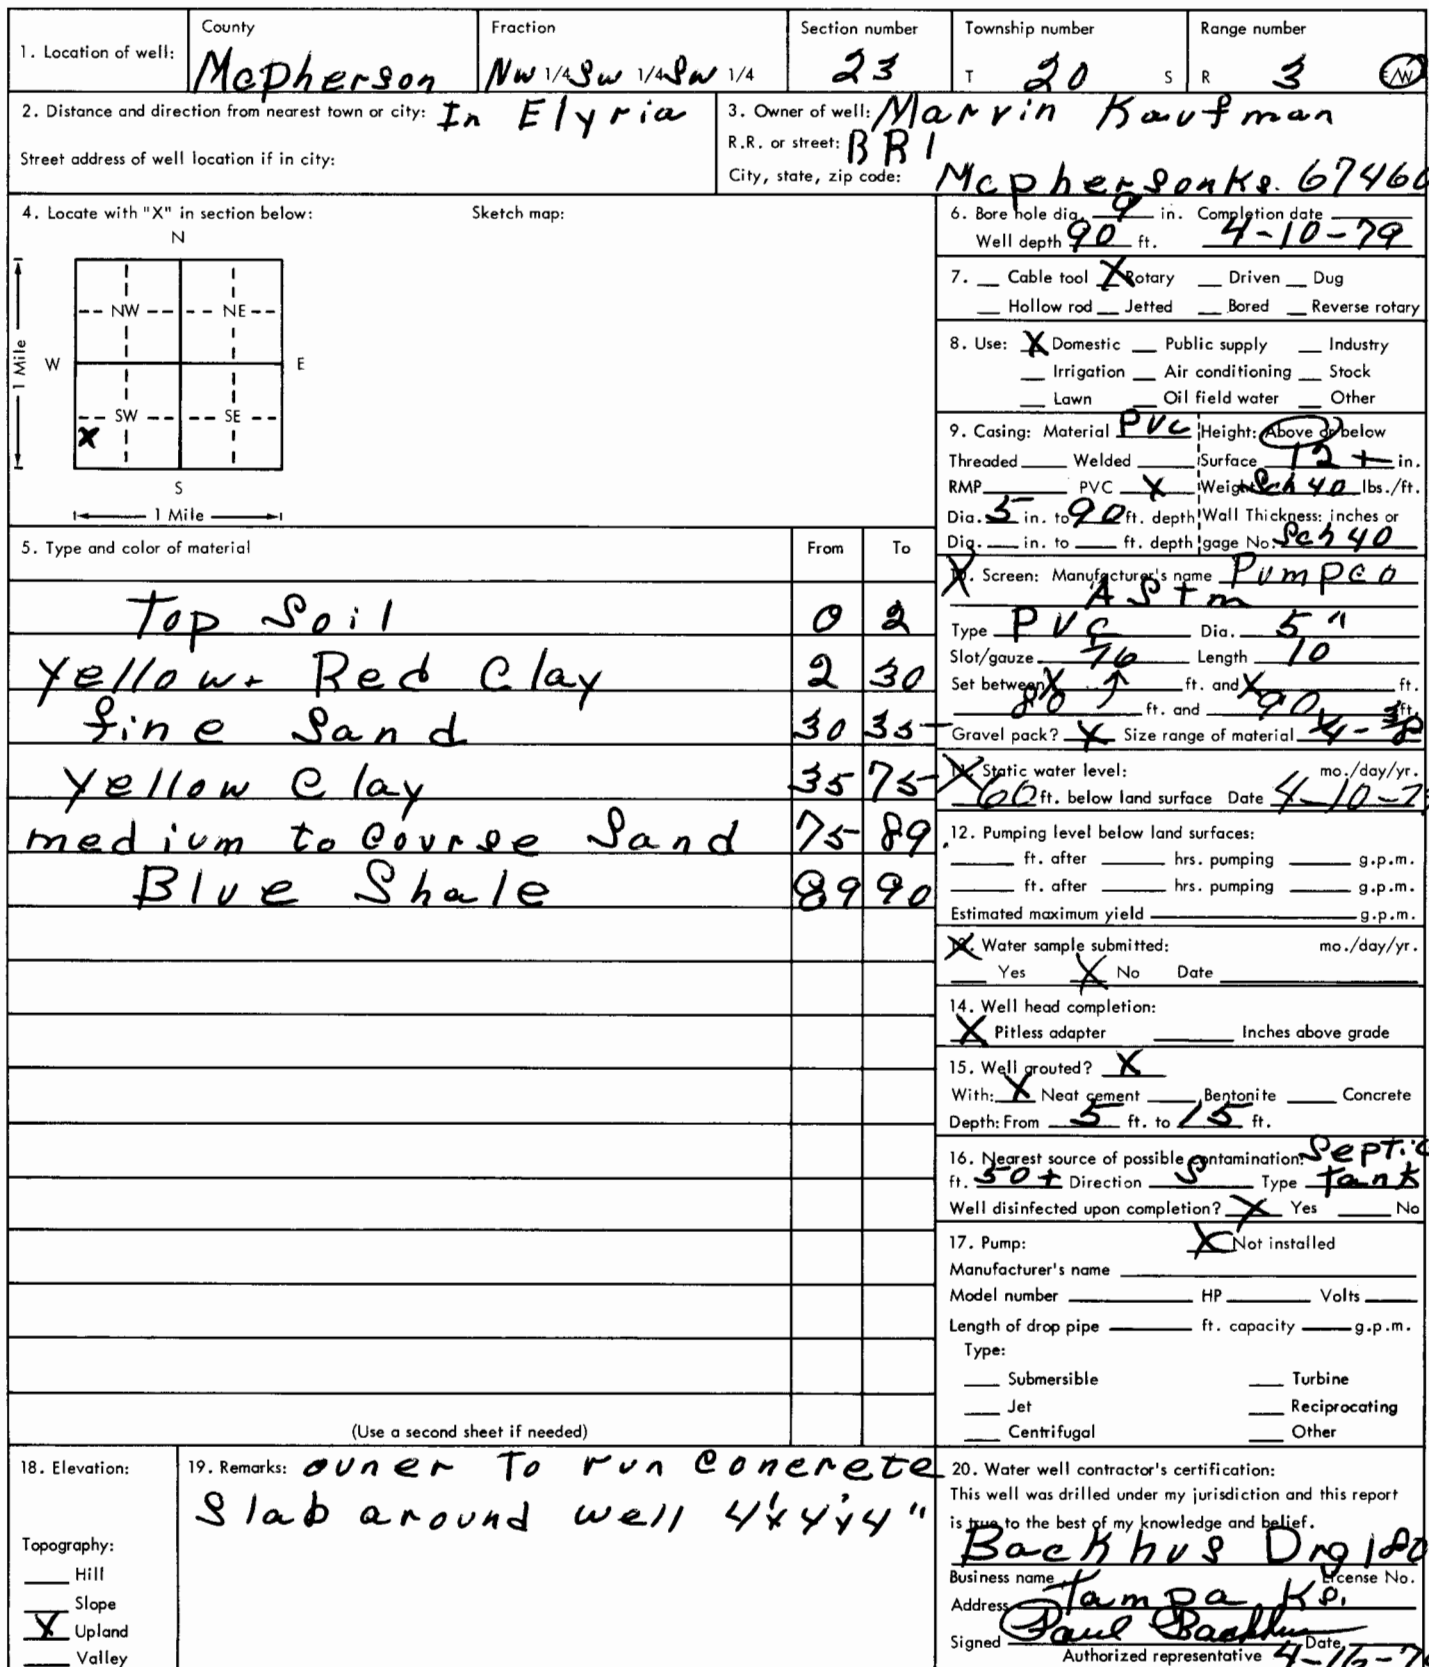 1. Location of well: County McPherson Fraction NW 1/4 SW 1/4 SW 1/4 Section number 23 Township number T 20 S Range number R 3 E/W
2. Distance and direction from nearest town or city: In Elyria
Street address of well location if in city:
3. Owner of well: Marvin Kaufman
R.R. or street: BR1
City, state, zip code: McPherson Ks. 67460
4. Locate with "X" in section below: Sketch map:
N
NW NE
W E
SW SE
X
S
1 Mile
1 Mile
5. Type and color of material From To
Top Soil 0 2
Yellow + Red Clay 2 30
fine Sand 30 35
Yellow Clay 35 75
medium to Course Sand 75 89
Blue Shale 89 90
(Use a second sheet if needed)
6. Bore hole dia. 9 in. Completion date
Well depth 90 ft. 4-10-79
7. Cable tool X Rotary Driven Dug
Hollow rod Jetted Bored Reverse rotary
8. Use: X Domestic Public supply Industry
Irrigation Air conditioning Stock
Lawn Oil field water Other
9. Casing: Material PVC Height: Above or below
Threaded Welded Surface 12 + in.
RMP PVC X Weight Sch 40 lbs./ft.
Dia. 5 in. to 90 ft. depth Wall Thickness: inches or
Dia. in. to ft. depth gage No. Sch 40
X Screen: Manufacturer's name Pumpco
ASTM
Type PVC Dia. 5"
Slot/gauze Length 10
Set between X ft. and X ft.
80 ft. and 90 ft.
Gravel pack? X Size range of material
X Static water level: mo./day/yr.
60 ft. below land surface Date 4-10-7
12. Pumping level below land surfaces:
ft. after hrs. pumping g.p.m.
ft. after hrs. pumping g.p.m.
Estimated maximum yield g.p.m.
X Water sample submitted: mo./day/yr.
Yes X No Date
14. Well head completion:
X Pitless adapter Inches above grade
15. Well grouted? X
With: X Neat cement Bentonite Concrete
Depth: From 5 ft. to 15 ft.
16. Nearest source of possible contamination: Septic
ft. 50+ Direction S Type tank
Well disinfected upon completion? X Yes No
17. Pump: X Not installed
Manufacturer's name
Model number HP Volts
Length of drop pipe ft. capacity g.p.m.
Type:
Submersible Turbine
Jet Reciprocating
Centrifugal Other
18. Elevation:
Topography:
Hill
Slope
X Upland
Valley
19. Remarks: owner To run Concrete
Slab around well 4'x4'x4"
20. Water well contractor's certification:
This well was drilled under my jurisdiction and this report
is true to the best of my knowledge and belief.
Backhus Drg 180
Business name License No.
Address Tampa Ks.
Signed Paul Backhus Date
Authorized representative